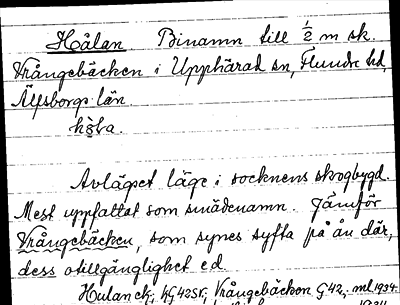 Hålan Binamn till 1/2 m sk.
Vrångebäcken i Upphärad sn, Flundre hd,
Älfsborgs län.
Avlägset läge i socknens skogbygd.
Mest uppfattat som smädenamn. Jämför
Vrångebäcken, som synes syfta på ån där,
dess otillgänglighet e.d.
Vrångebäcken G42, ml 1934.